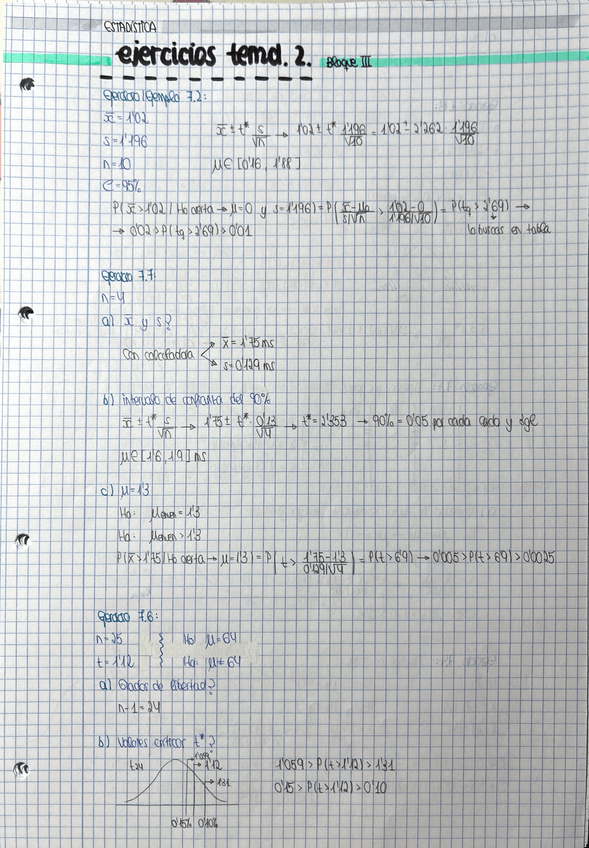 ESTADÍSTICA
ejercicios tema. 2. Bloque III
Ejercicio/Ejemplo 7.2:
x̄ = 1'02
s = 1'196
n = 10
C = 95%
x̄ ± t* s/√n → 1'02 ± t* 1'196/√10 = 1'02 ± 2'262 · 1'196/√10
μ ∈ [0'16, 1'88]
P(x̄ > 1'02 / Ho cierta → μ = 0 y s = 1'196) = P(x̄ - μ0 / s/√n > 1'02 - 0 / 1'196/√10) = P(t9 > 2'69) →
→ 0'02 > P(t9 > 2'69) > 0'01
lo buscas en tabla
Ejercicio 7.7:
n = 4
a) x̄ y s?
Con calculadora
x̄ = 1'75 ms
s = 0'129 ms
b) intervalo de confianza del 90%
x̄ ± t* s/√n → 1'75 ± t* · 0'13/√4 → t* = 2'353 → 90% = 0'05 por cada lado y 3gl
μ ∈ [1'6, 1'9] ms
c) μ = 1'3
Ho: μ = 1'3
Ha: μ > 1'3
P(x̄ > 1'75 / Ho cierta → μ = 1'3) = P(t > 1'75 - 1'3 / 0'129/√4) = P(t > 6'9) → 0'005 > P(t > 6'9) > 0'0025
Ejercicio 7.6:
n = 25 Ho: μ = 64
t = 1'12 Ha: μ ≠ 64
a) Grados de libertad?
n - 1 = 24
b) Valores críticos t*?
t24
1'059
1'12
1'31
0'15% 0'10%
1'059 > P(t > 1'12) > 1'31
0'15 > P(t > 1'12) > 0'10